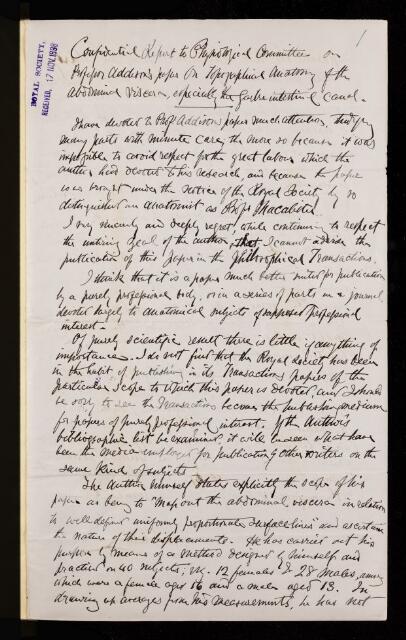 1
ROYAL SOCIETY.
RECEIVED, 17 NOV. 1898
Confidential Report to Physiological Committee on
Professor Addison's paper on Topographical Anatomy of the
abdominal viscera, especially the Gastro intestinal canal.
I have devoted to Prof Addison's paper much attention,
many parts with minute care, the more so because it was
impossible to avoid respect for the great labour which the
author had devoted to his research, and because the paper
was brought under the notice of the Royal Society by so
distinguished an anatomist as Profr Macalister.
I very sincerely and deeply regret, while continuing to respect
the untiring zeal of the author, that I cannot advise the
publication of this paper in the Philosophical Transactions.
I think that it is a paper much better suited for publication
by a purely professional body, or in a series of parts in a journal,
devoted largely to anatomical subjects of supposed professional
interest.
Of purely scientific result there is little if anything of
importance. I do not find that the Royal Society has been
in the habit of publishing in its Transactions papers of the
particular scope to which this paper is devoted, and I should
be sorry to see the Transactions become the publishing medium
for papers of purely professional interest. If the Author's
bibliographic list be examined, it will be seen what have
been the media employed for publication by other writers on the
same kind of subjects.
The Author himself states explicitly the scope of his
paper as being to "Map out the abdominal viscera in relation
to well defined uniformly proportionate surface lines" and ascertain
the nature of their displacements. He has carried out his
purpose by means of a method designed by himself and
practised on 40 subjects, viz. 12 females & 28 males, among
which were a female aged 16 and a male aged 13. In
drawing up averages from his measurements, he has not